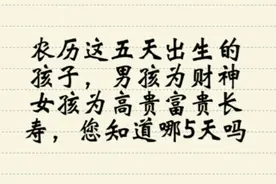 农历这五天出生的
孩子，男孩为财神
女孩为高贵富贵长
寿，您知道哪5天吗